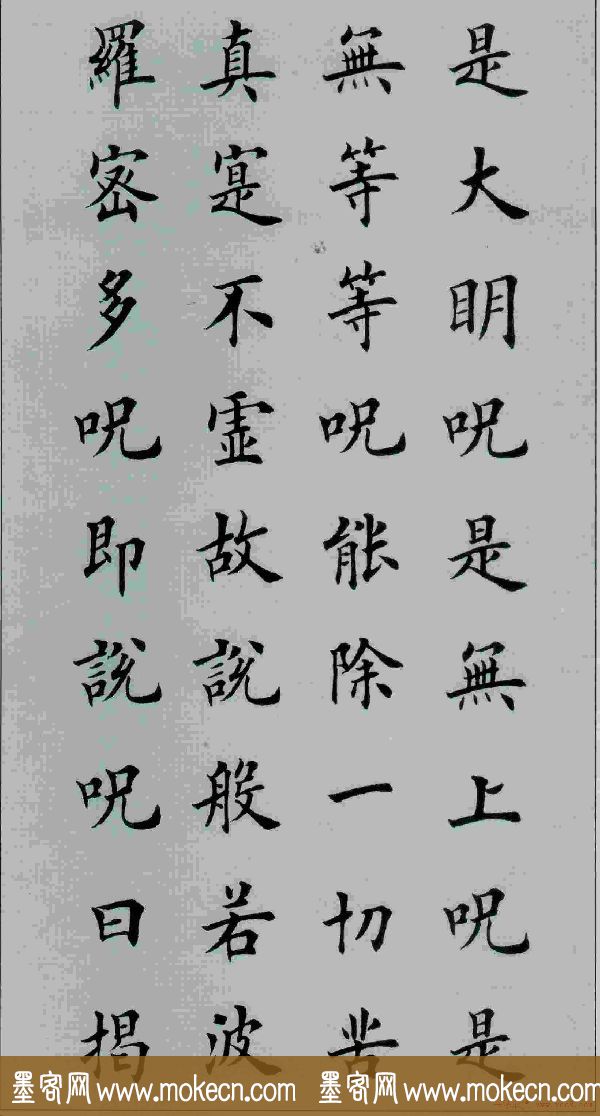 是大明呪是無上呪是
無等等呪能除一切苦
真寔不虛故說般若波
羅密多呪即說呪曰揭
墨客网 www.mokecn.com 墨客网 www.mokecn.com